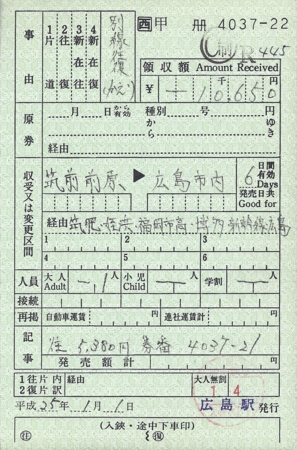 西 甲 冊 4037-22
事由
1片道
2往復
3新在往
4新在復
別線往復
R445
領収額 Amount Received
千 円
¥ 10650
原券
月 日 から有効 種別 号
から ゆき
経由
収受又は変更区間
筑前前原 → 広島市内
6 日間 Days
発売日共
有効 Good for
経由 筑肥・姪浜・福岡市高・博多・新幹線・広島
1 2 3
4 5 6
人員 大人 Adult 1 小児 Child 学割
接続
再掲 自動車運賃 連社運賃計
記事
往 5,380円 券番 4037-21
発売額計
1往片 内
2復片 訳
経由 大人無割
1 4
平成 25年 1月 1日 広島駅 発行
(入鋏・途中下車印)
往 復